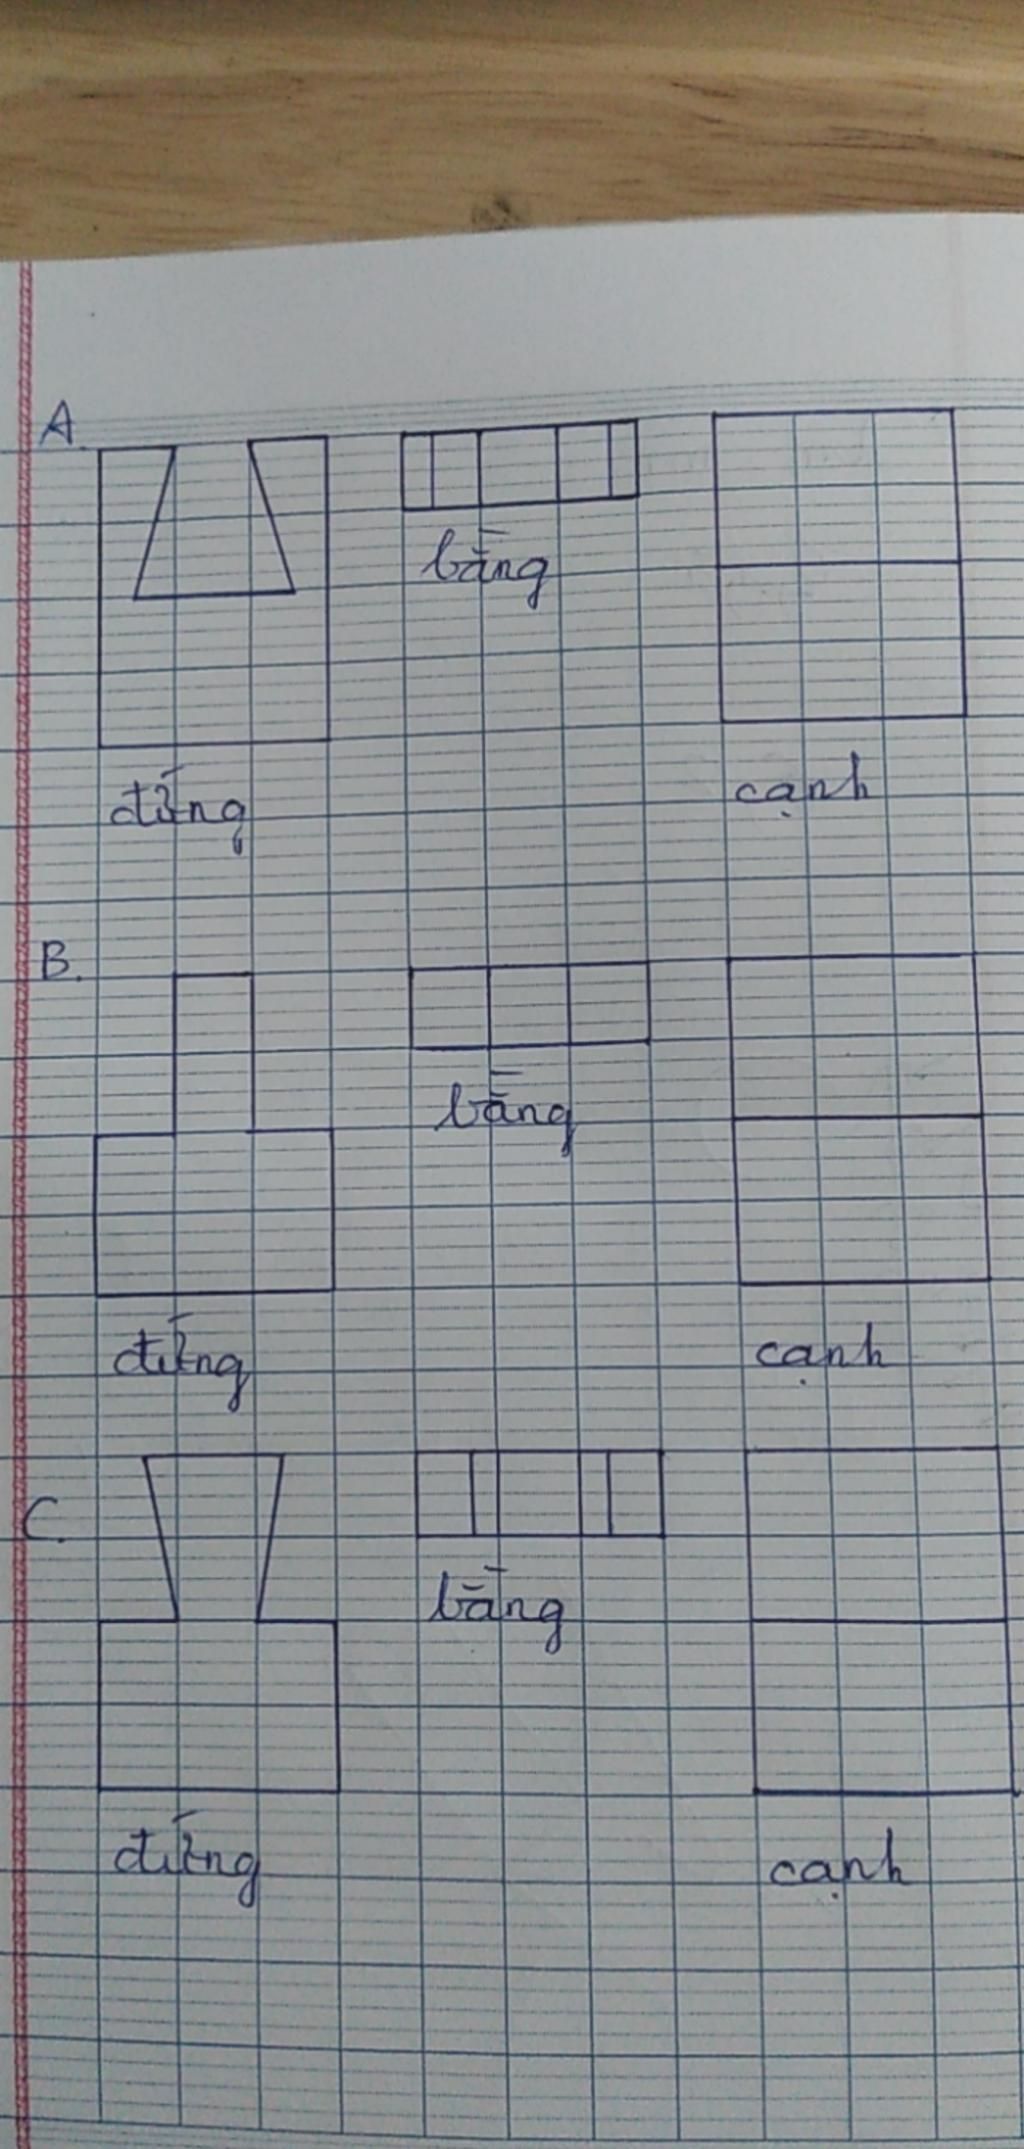 A.
bằng
đứng
cạnh
B.
bằng
đứng
cạnh
C.
bằng
đứng
cạnh